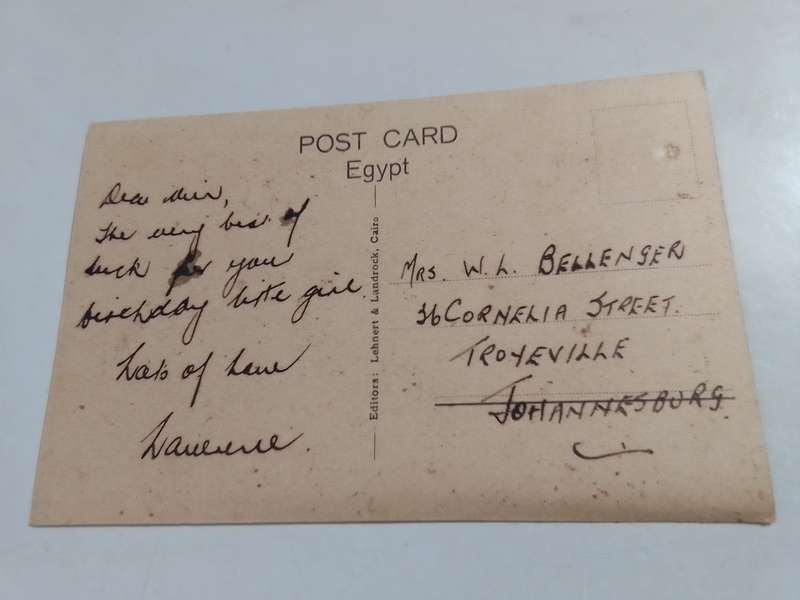 POST CARD
Egypt
Dear
The very best of
luck for you
birthday little girl.
Lots of Love
Lawrence.
Editors: Lehnert & Landrock, Cairo
MRS. W. L. BELLENGER
36 CORNELIA STREET.
TROYEVILLE
JOHANNESBURG.